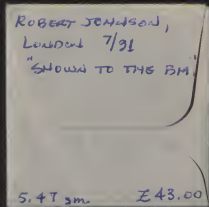 ROBERT JOHNSON,
LONDON 7/91
"SHOWN TO THE BM."
5.47 gm £43.00